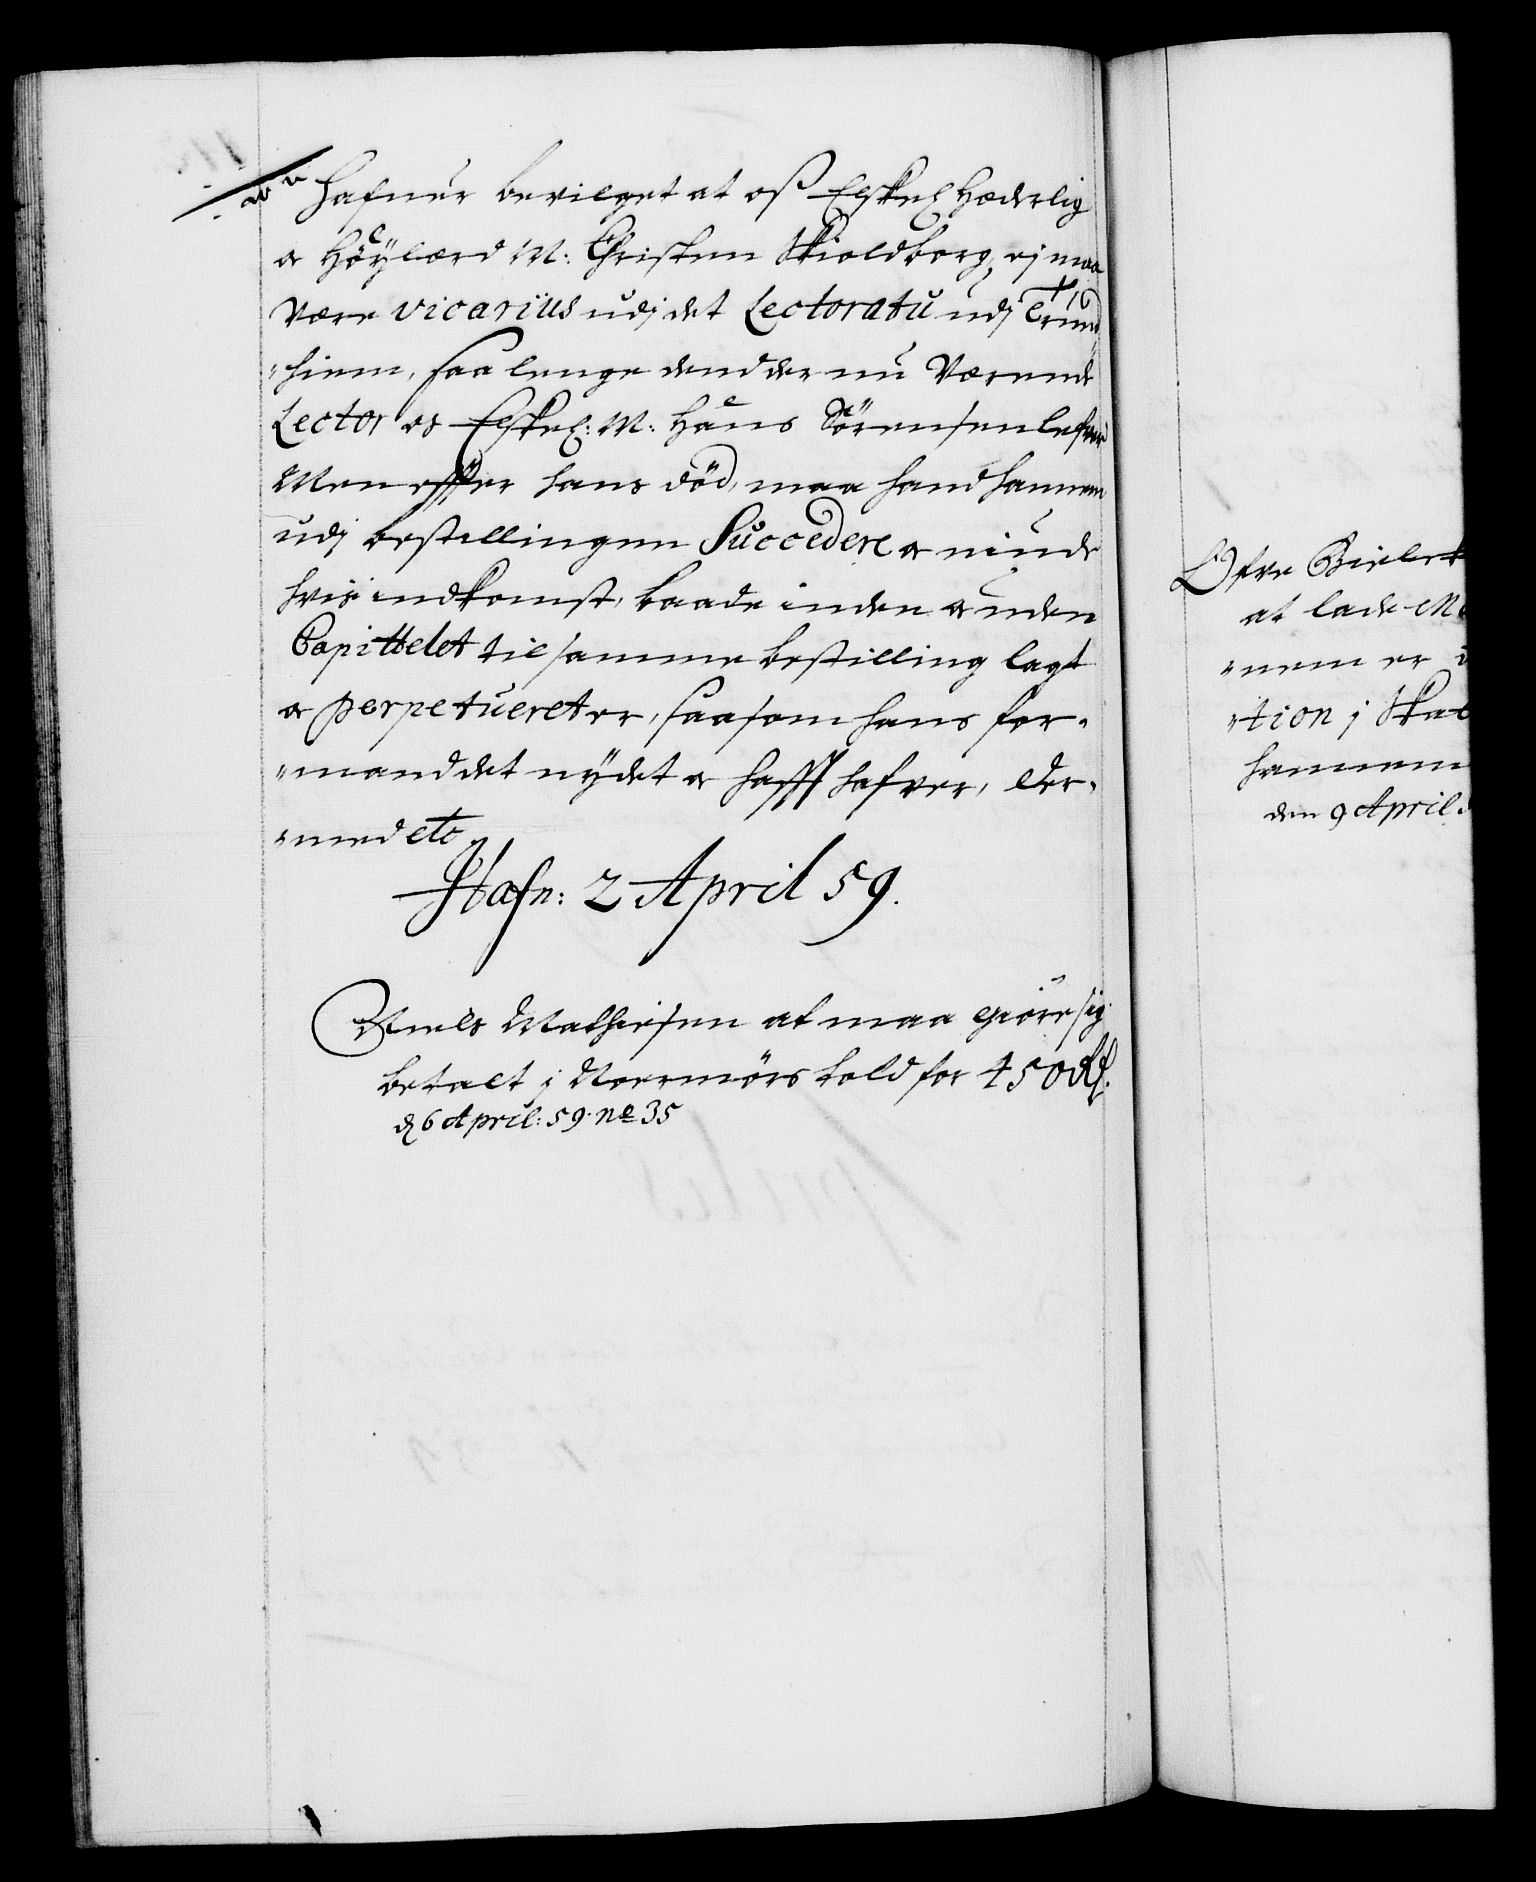 hafuer bevilget at oß Elskel hæderlig
og Höylærd M: Christen Skioldborg, ej maa
være vicariüs udj det Lectoratu udj Trund-
hiem, saa lenge dend der nu Værende
Lector os Elskel: M: Hans Sörensen lefver
Men effter hans död, maa hand hannem
udj bestellingen Succedere og niude
hvis indkomst, baade inden og uden
Capittelet til samme bestilling lagt
og perpetueret er, saasom hans for-
mand det nydet og hafft hafver, Der-
med etc
Hafn: 2 April 59.
Niels Mathiesen at maa giöre sig
betalt j Normörs told for 450 Rd.
d 6 April: 59. No 35
Ofve Bielke
at lade M
nem er
tion j Skat
hannem
den 9 April.